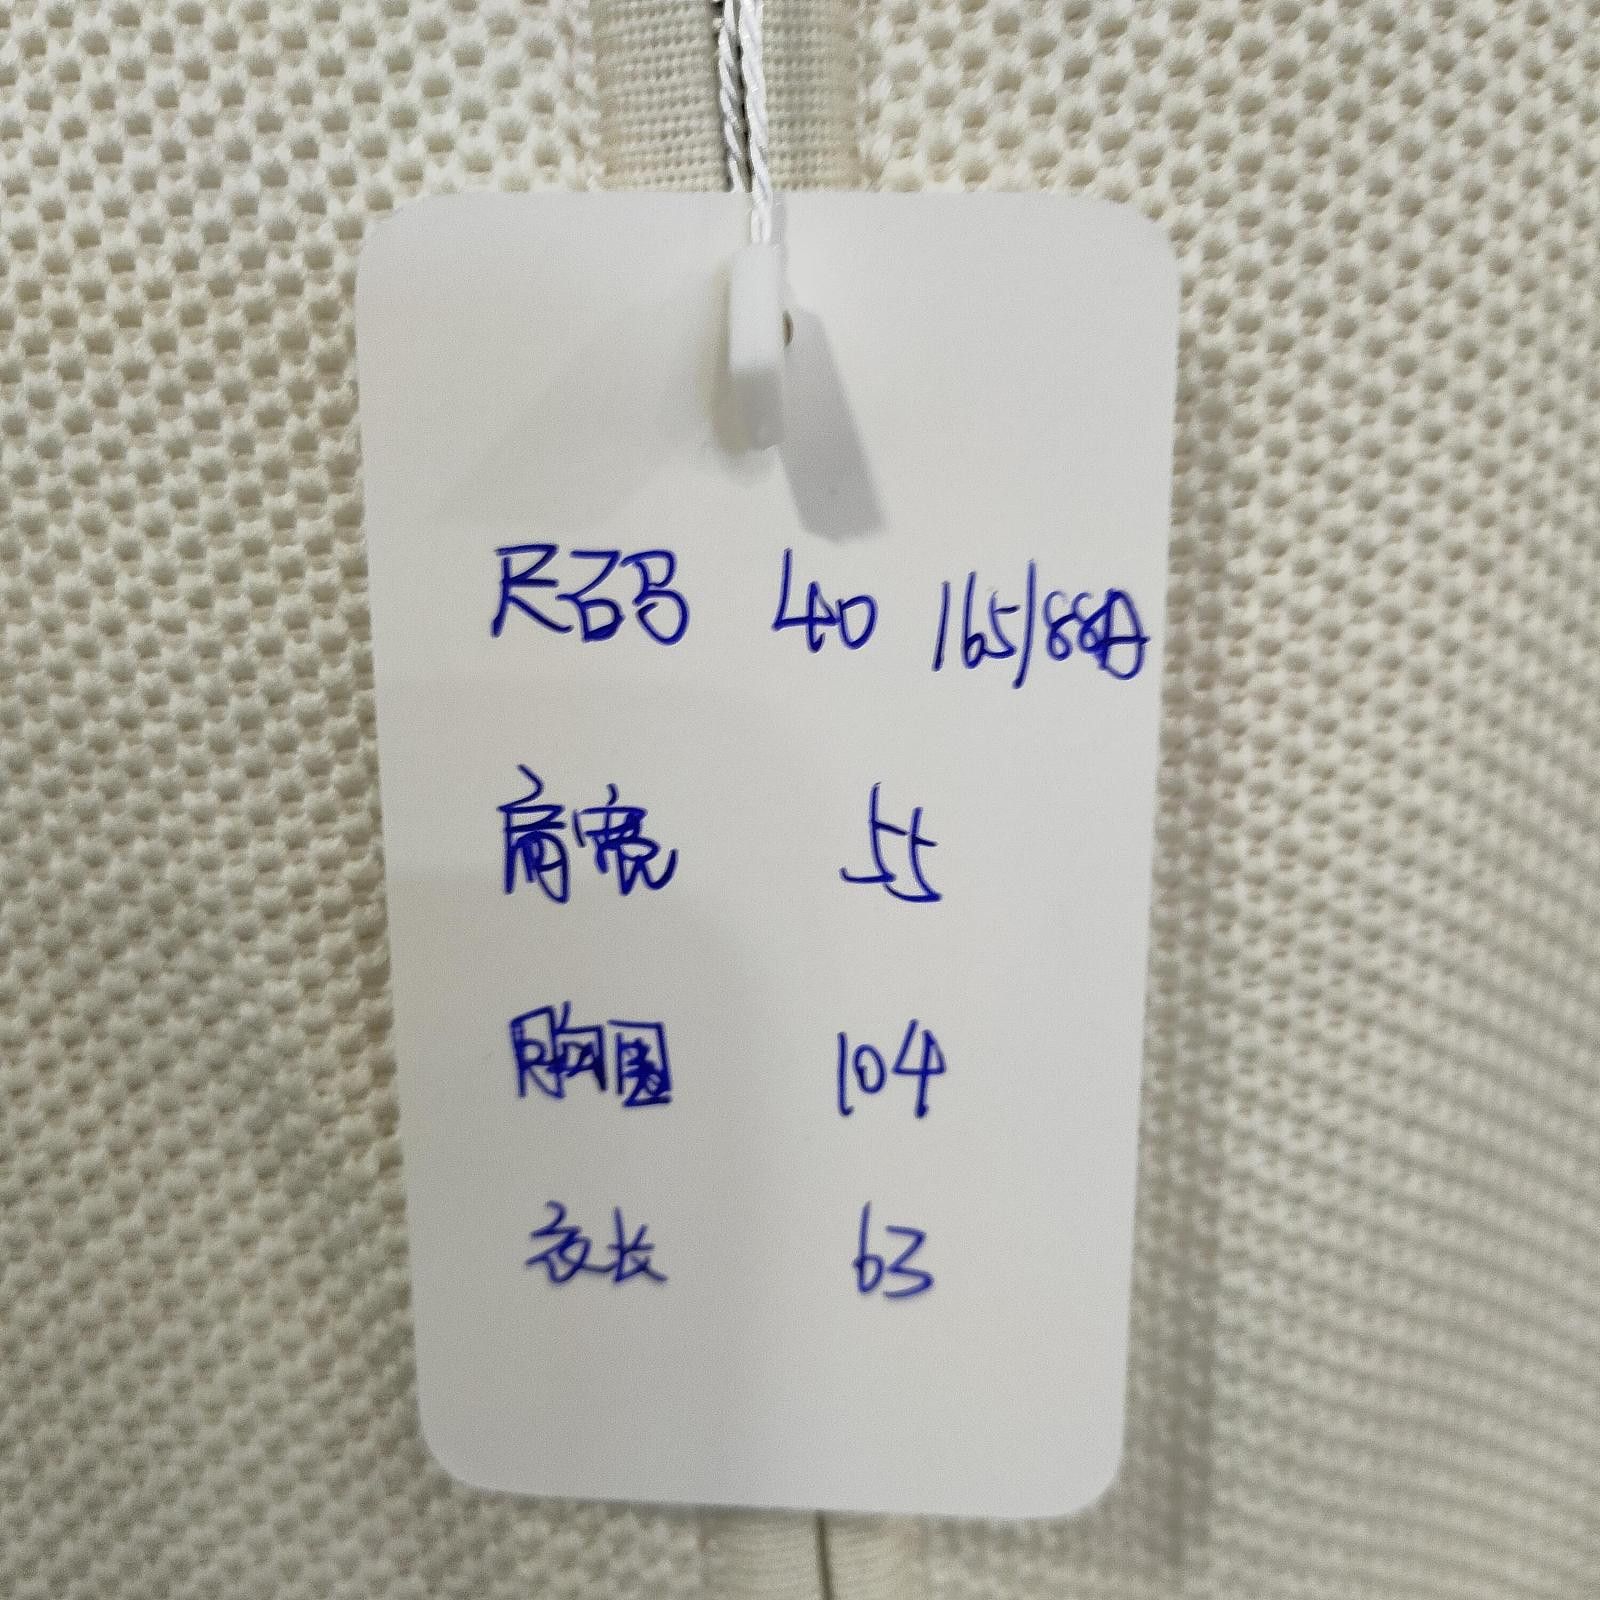 尺码 40 165/88A
肩宽 55
胸围 104
衣长 63